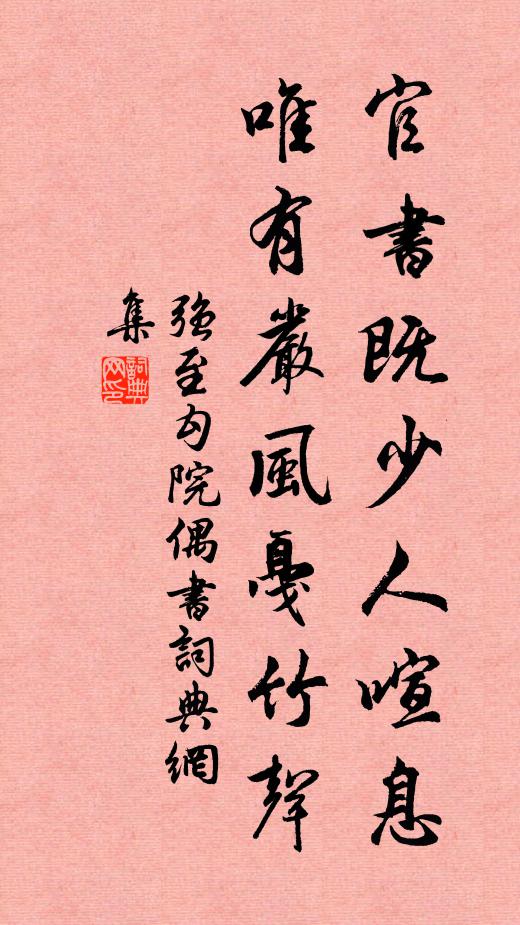 官書既少人喧息
唯有嚴風戛竹聲
強至勾院偶書詞典網
集
詞典網印